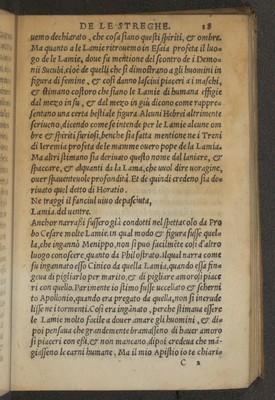 DE LE STREGHE. 18
uemo dechiarato, che cosa siano questi spiriti, & ombre.
Ma quanto a le Lamie ritrouemo in Esaia profeta il luo-
go de le Lamie, doue fa mentione del scontro de i Demo-
nii Sucubi, cioè de quelli che si dimostrano a gli huomini in
figura di femine, & cosi danno lasciui piaceri a i maschi,
& stimano costoro che siano le Lamie di humana effigie
dal mezo in su, & dal mezo in giù dicono come rappre-
sentano una certa bestiale figura. Alcuni Hebrei altrimente
scriueno, dicendo come se intende per le Lamie alcune om
bre & spiriti furiosi, benche sia fatta mentione ne i Treni
di Ieremia profeta de le mamme ouero pope de la Lamia.
Ma altri stimano sia deriuato questo nome dal laniare, &
spaccare, & alquanti da la Lama, che uuol dire uoragine,
ouer spauenteuole profondità. Et de quindi credeno sia de-
riuato quel detto di Horatio.
Ne traggi il fanciul uiuo depasciuta,
Lamia del uentre.
Anchor narrassi fussero già condotti nel spettacolo da Pro
bo Cesare molte Lamie. in qual modo & figura fusse quel-
la, che ingannò Menippo, non si puo facilmēte cosi d'altro
luogo conoscere, quanto da Philostrato. Il qual narra come
fu ingannato esso Cinico da quella Lamia, quando essa fin-
geua di pigliarlo per marito, & di pigliare amorosi piace
ri con quello. Parimente io stimo fusse uccellato & scherni
to Apollonio, quando era pregato da quella, non si increude
lisse ne i tormenti. Cosi era ingānato, perche stimaua essere
le Lamie molto facile a douer amare gli huomini, & di-
poi pensaua che grandemente bramasseno di hauer amoro
si piaceri con essi, & non mancano, dipoi credeua che mā-
giasseno le carni humane, Ma il mio Apistio io te chiari-
C 2